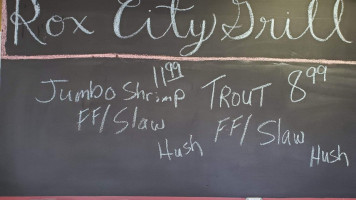 Rox City Grill
11.99
Jumbo Shrimp
FF/Slaw
Hush
TROUT 8.99
FF/Slaw
Hush